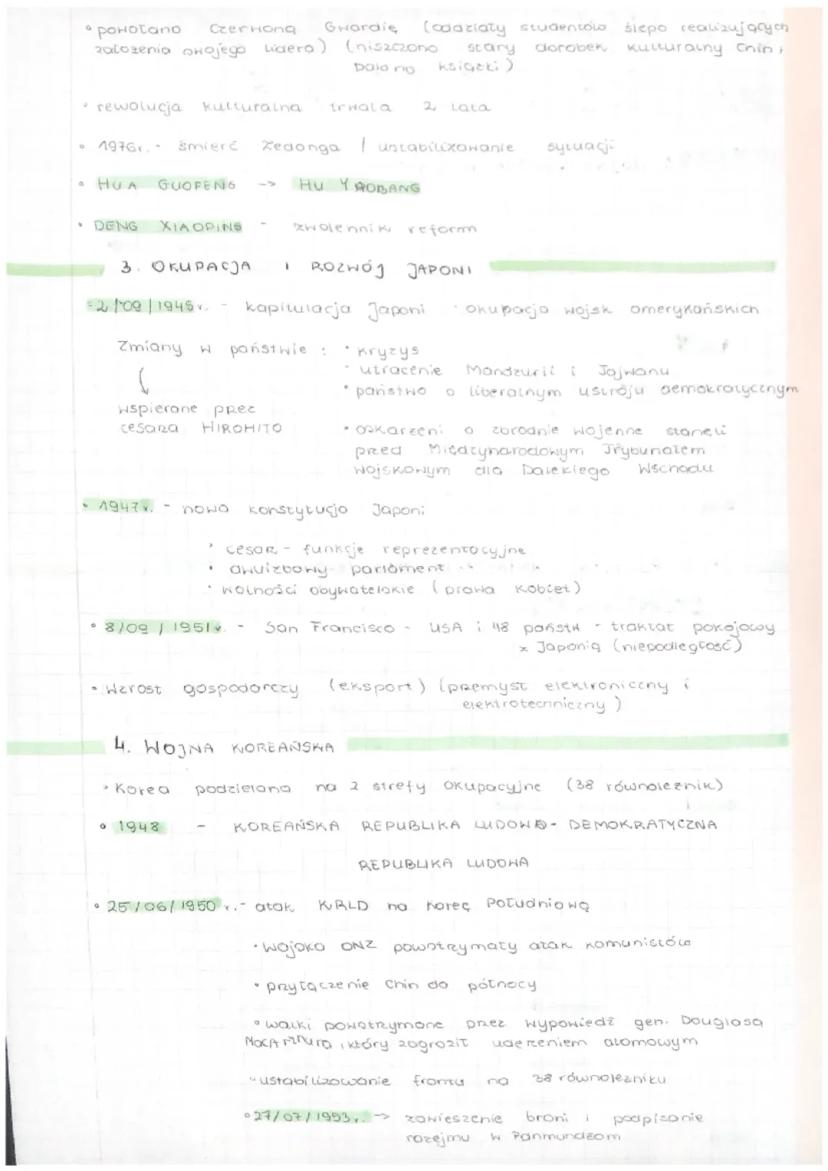 • powołano Czerwoną Gwardię (oddziały studentów ślepo realizujących
założenia swojego lidera) (niszczono stary dorobek kulturalny Chin,
palono książki)
• rewolucja kulturalna trwała 2 lata
• 1976r. - śmierć Zedonga / ustabilizowanie sytuacji
• HUA GUOFENG -> HU YAOBANG
• DENG XIAOPING - zwolennik reform
3. OKUPACJA I ROZWÓJ JAPONI
• 2/09/1945r. - kapitulacja Japoni · okupacja wojsk amerykańskich
Zmiany w państwie : • kryzys
• utracenie Mandżurii i Tajwanu
• państwo o liberalnym ustroju demokratycznym
wspierane przez
cesarza HIROHITO
• oskarżeni o zbrodnie wojenne stanęli
przed Międzynarodowym Trybunałem
Wojskowym dla Dalekiego Wschodu
• 1947r. - nowa konstytucja Japoni
• cesarz - funkcje reprezentacyjne
• dwuizbowy parlament
• wolności obywatelskie (prawa kobiet)
• 8/09/1951r. - San Francisco - USA i 48 państw - traktat pokojowy
z Japonią (niepodległość)
• Wzrost gospodarczy (eksport) (przemysł elektroniczny i
elektrotechniczny)
4. WOJNA KOREAŃSKA
• Korea podzielona na 2 strefy okupacyjne (38 równoleżnik)
• 1948 - KOREAŃSKA REPUBLIKA LUDOWO-DEMOKRATYCZNA
REPUBLIKA LUDOWA
• 25/06/1950r. - atak KRLD na Koreę Południową
• wojsko ONZ powstrzymały atak komunistów
• przyłączenie Chin do północy
• walki powstrzymane przez wypowiedź gen. Douglasa
MacArthura, który zagroził uderzeniem atomowym
• ustabilizowanie frontu na 38 równoleżniku
• 27/07/1953r. -> zawieszenie broni i podpisanie
rozejmu w Panmundżom